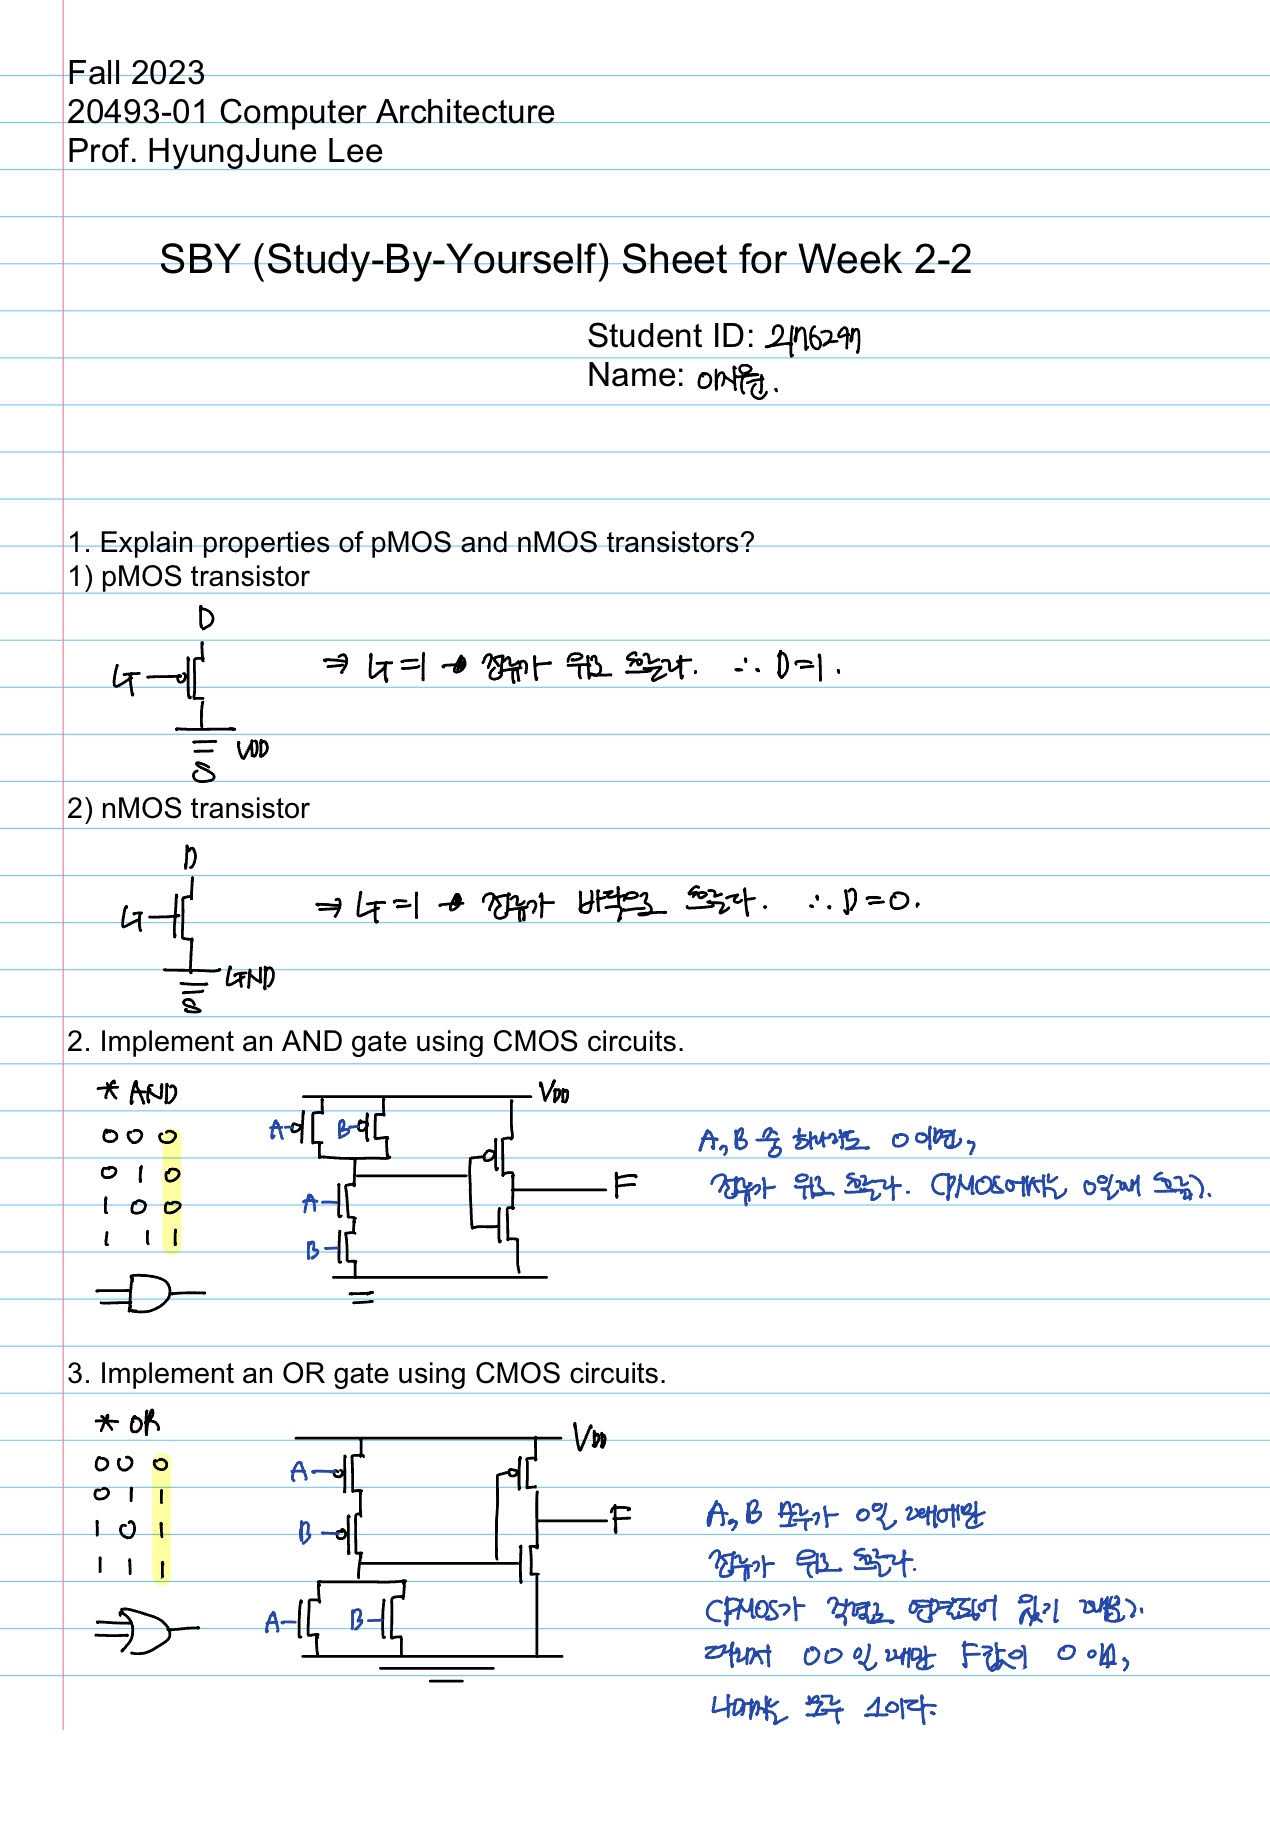 Fall 2023
20493-01 Computer Architecture
Prof. HyungJune Lee
SBY (Study-By-Yourself) Sheet for Week 2-2
Student ID: 2176297
Name: 이시원.
1. Explain properties of pMOS and nMOS transistors?
1) pMOS transistor
D
G ⇒ G=1 → 전류가 위로 흐른다. ∴ D=1.
VDD
S
2) nMOS transistor
D
G ⇒ G=1 → 전류가 바닥으로 흐른다. ∴ D=0.
GND
S
2. Implement an AND gate using CMOS circuits.
* AND VDD
A B
0 0 0 A, B 중 하나라도 0이면,
0 1 0 F 전류가 위로 흐른다. (PMOS에서는 0일때 흐름).
1 0 0 A
1 1 1 B
3. Implement an OR gate using CMOS circuits.
* OR VDD
0 0 0 A
0 1 1 F A, B 모두가 0일 때에만
1 0 1 B
1 1 1 전류가 위로 흐른다.
A B (PMOS가 직렬로 연결되어 있기 때문).
00일 때만 F값이 0이고,
나머지는 모두 1이다.